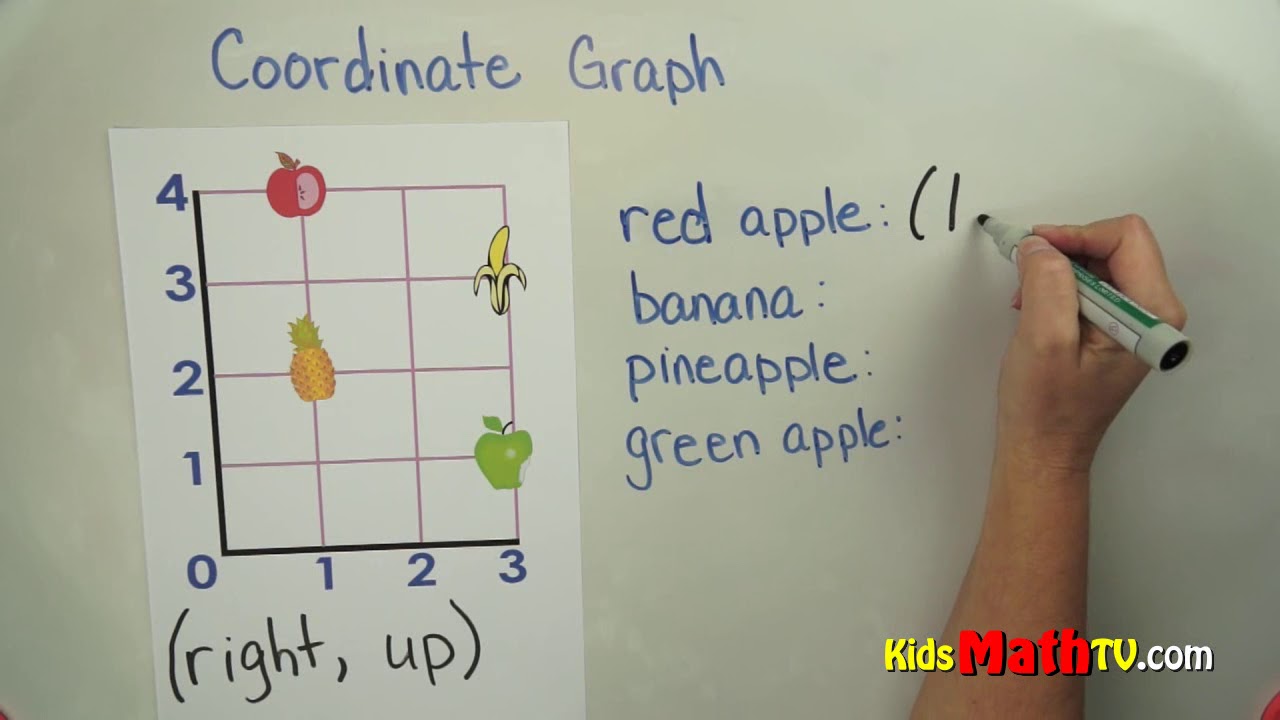 Coordinate Graph
4
3
2
1
0 1 2 3
(right, up)
red apple: (1
banana:
pineapple:
green apple:
KidsMathTV.com